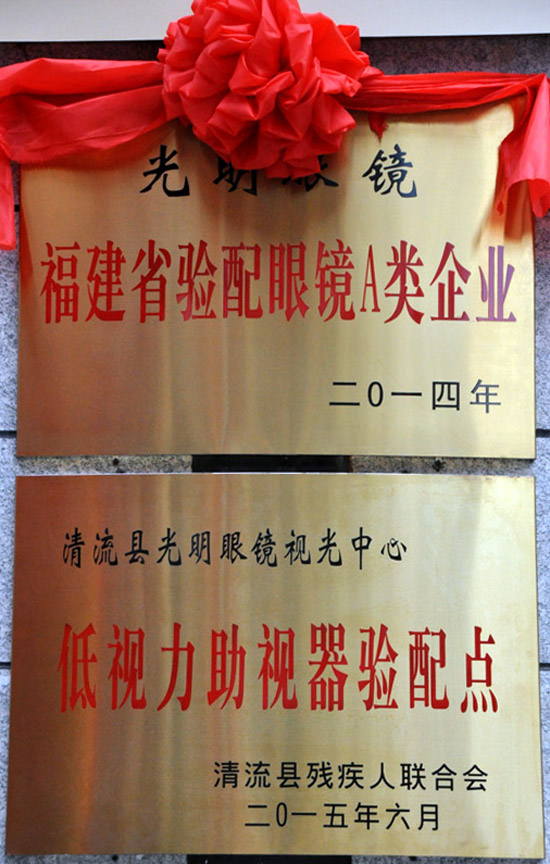 光明眼镜
福建省验配眼镜A类企业
二0一四年
清流县光明眼镜视光中心
低视力助视器验配点
清流县残疾人联合会
二0一五年六月